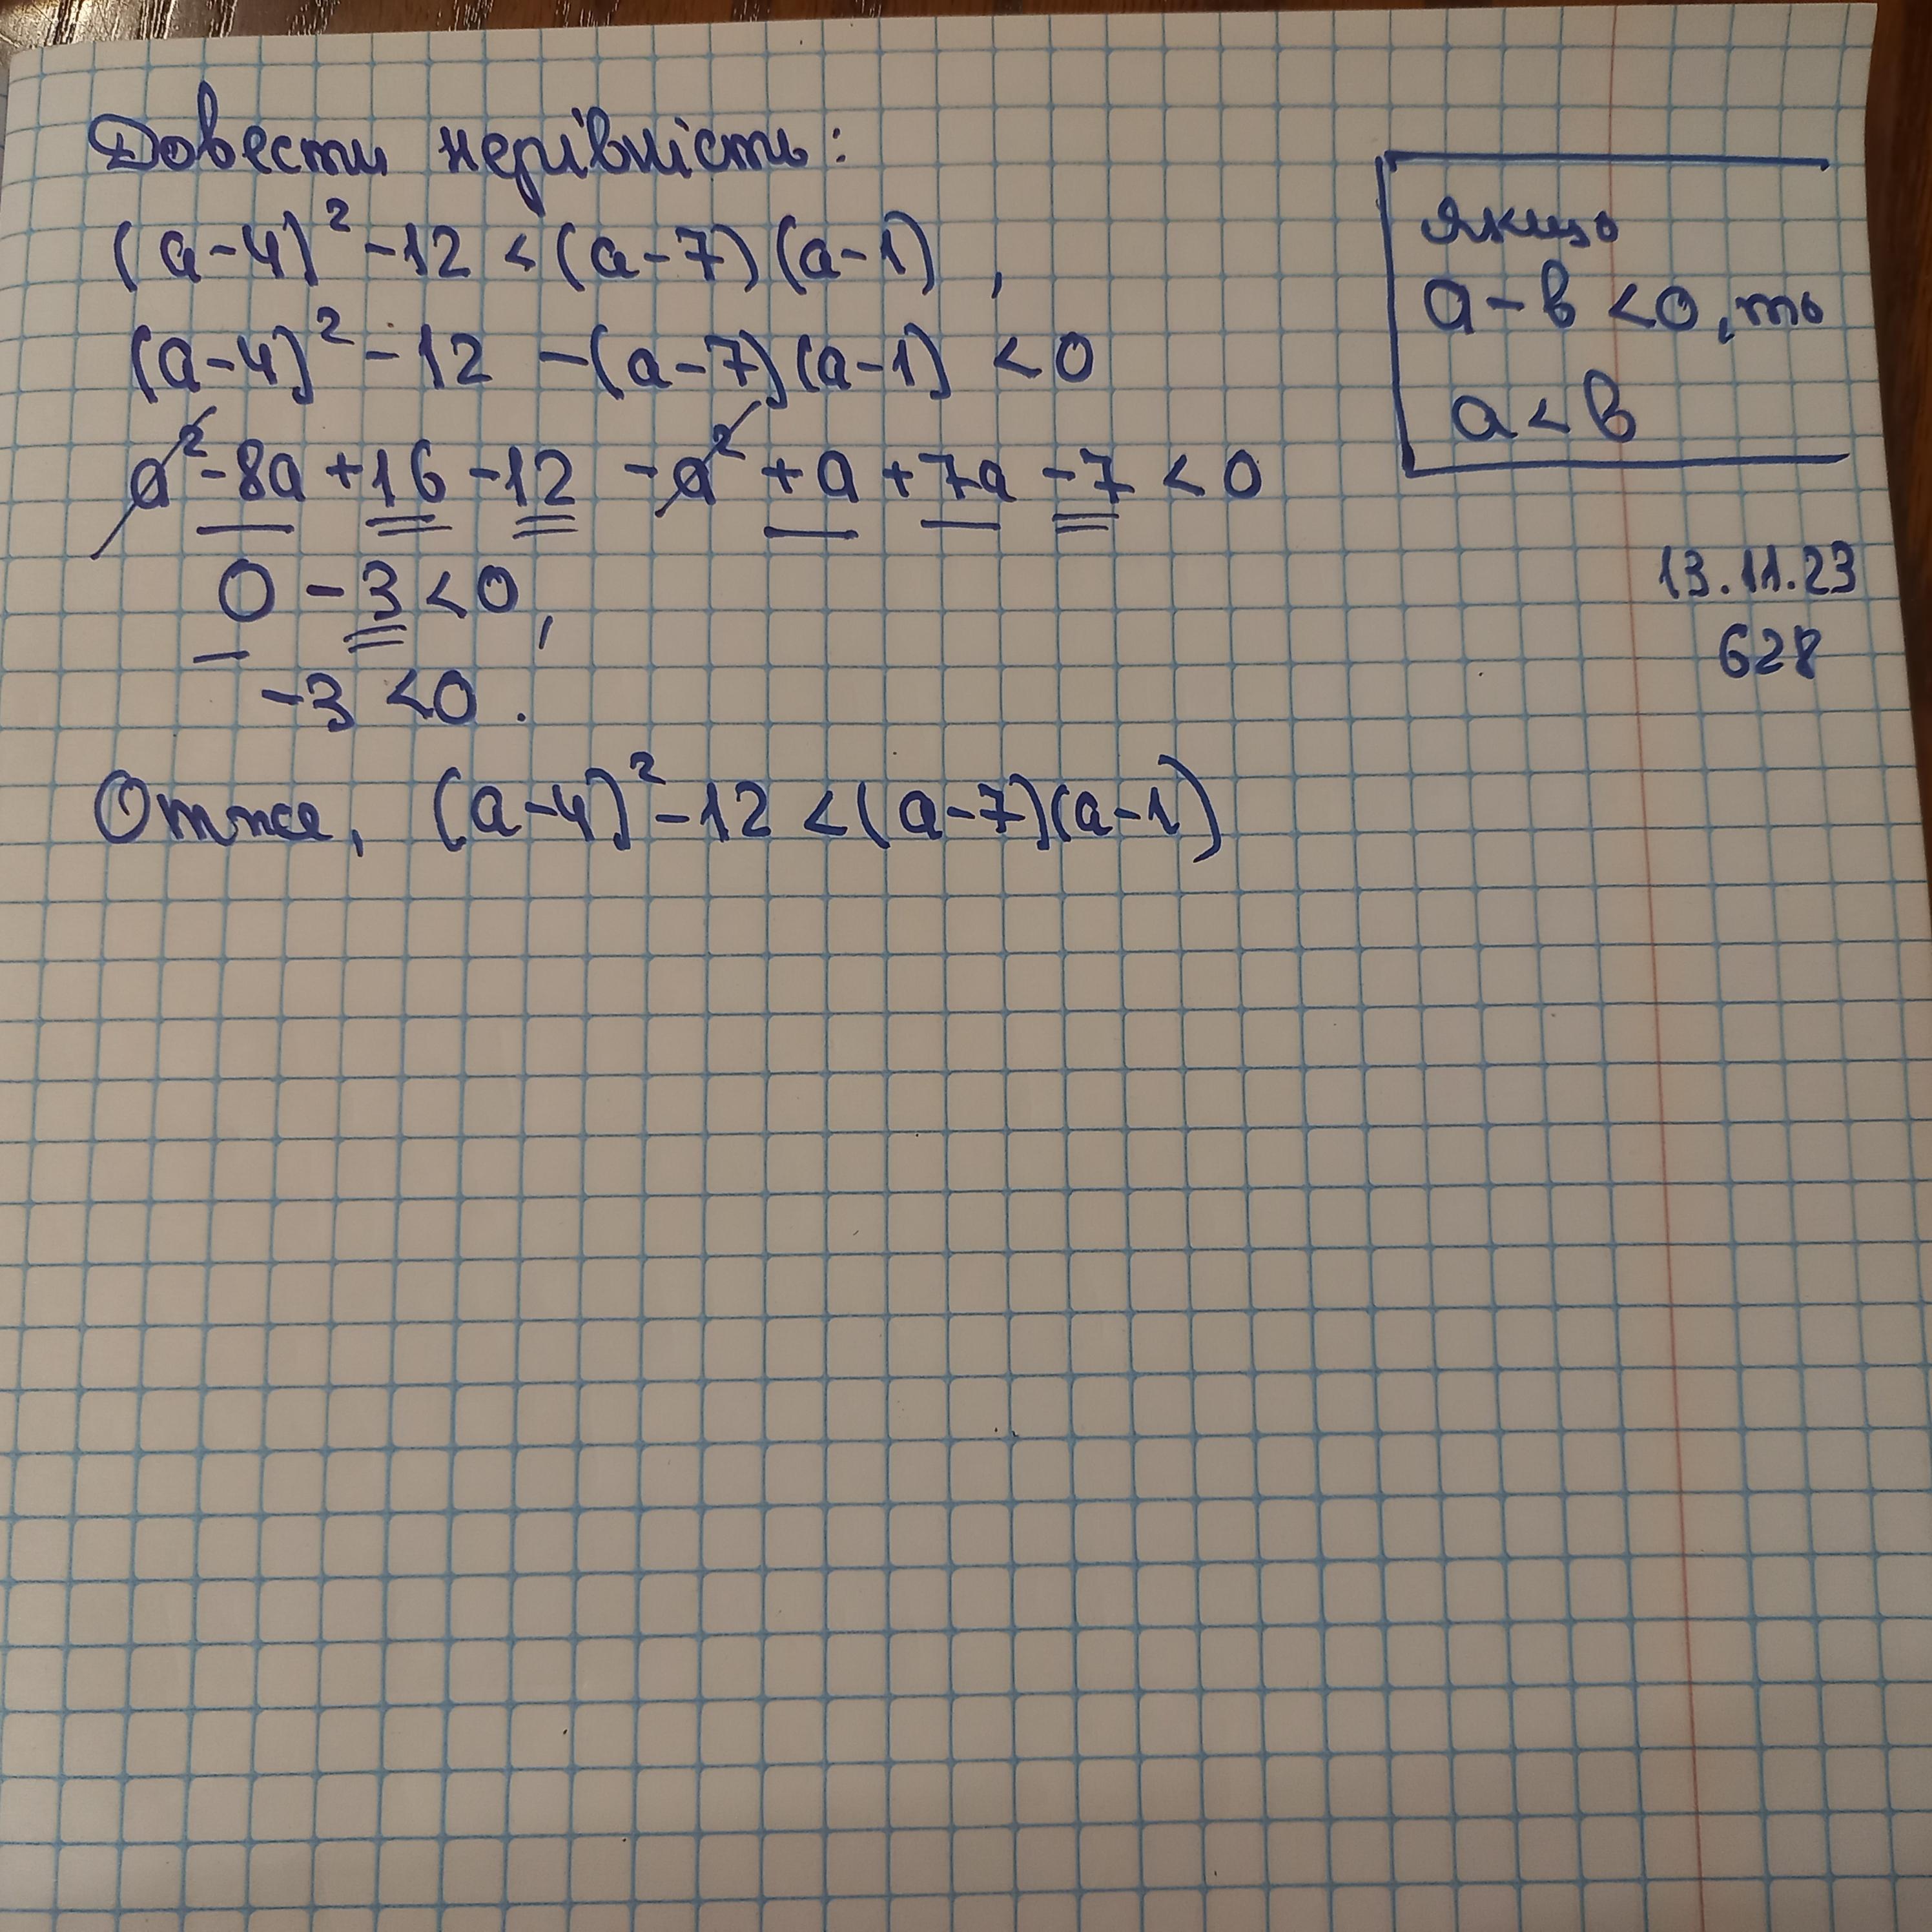 Довести нерівність:
(a-4)² -12 < (a-7)(a-1) ,
(a-4)² -12 -(a-7)(a-1) <0
a² -8a +16 -12 -a² +a +7a -7 <0
0 -3 <0,
-3 <0.
Отже, (a-4)² -12 <(a-7)(a-1)
Якщо
a-b <0, то
a< b
13.11.23
628